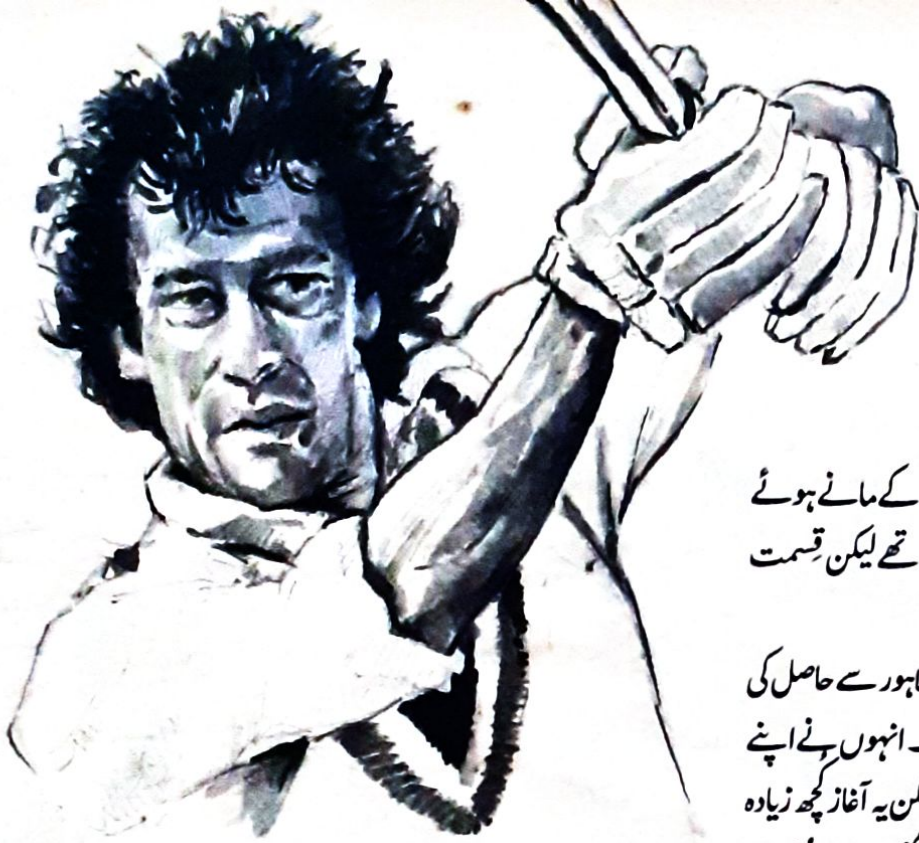 کے مانے ہوئے
تھے لیکن قِسمت
سے حاصل کی
انہوں نے اپنے
یہ آغاز کُچھ زیادہ